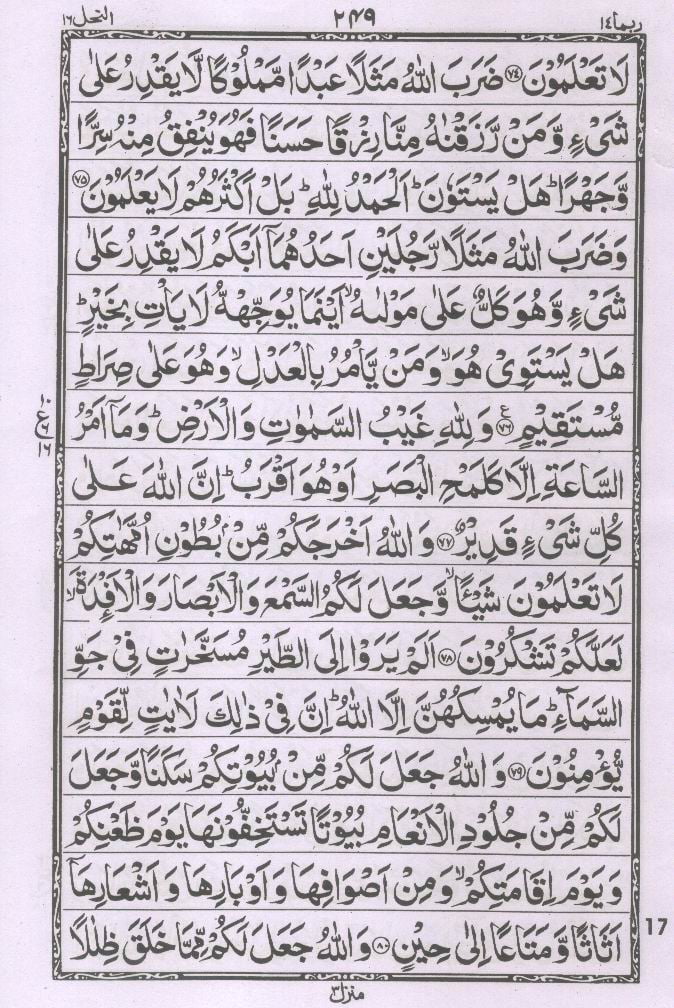 ربما ١٤ ٢٤٩ النحل ١٦
لَا تَعْلَمُوْنَ ﴿٧٤﴾ ضَرَبَ اللّٰهُ مَثَلًا عَبْدًا مَّمْلُوْكًا لَّا يَقْدِرُ عَلٰى
شَىْءٍ وَّمَنْ رَّزَقْنٰهُ مِنَّا رِزْقًا حَسَنًا فَهُوَ يُنْفِقُ مِنْهُ سِرًّا
وَّجَهْرًا ؕ هَلْ يَسْتَوٗنَ ؕ اَلْحَمْدُ لِلّٰهِ ؕ بَلْ اَكْثَرُهُمْ لَا يَعْلَمُوْنَ ﴿٧٥﴾
وَضَرَبَ اللّٰهُ مَثَلًا رَّجُلَيْنِ اَحَدُهُمَاۤ اَبْكَمُ لَا يَقْدِرُ عَلٰى
شَىْءٍ وَّهُوَ كَلٌّ عَلٰى مَوْلٰىهُ ۙ اَيْنَمَا يُوَجِّهْهُّ لَا يَاْتِ بِخَيْرٍ ؕ
هَلْ يَسْتَوِىْ هُوَ ۙ وَمَنْ يَّاْمُرُ بِالْعَدْلِ ۙ وَهُوَ عَلٰى صِرَاطٍ
مُّسْتَقِيْمٍ ﴿٧٦﴾ ع وَلِلّٰهِ غَيْبُ السَّمٰوٰتِ وَالْاَرْضِ ؕ وَمَاۤ اَمْرُ
١٠ ع ٦ ١٦
السَّاعَةِ اِلَّا كَلَمْحِ الْبَصَرِ اَوْ هُوَ اَقْرَبُ ؕ اِنَّ اللّٰهَ عَلٰى
كُلِّ شَىْءٍ قَدِيْرٌ ﴿٧٧﴾ وَاللّٰهُ اَخْرَجَكُمْ مِّنْۢ بُطُوْنِ اُمَّهٰتِكُمْ
لَا تَعْلَمُوْنَ شَيْـًٔا ۙ وَّجَعَلَ لَكُمُ السَّمْعَ وَالْاَبْصَارَ وَالْاَفْـِٕدَةَ ۙ
لَعَلَّكُمْ تَشْكُرُوْنَ ﴿٧٨﴾ اَلَمْ يَرَوْا اِلَى الطَّيْرِ مُسَخَّرٰتٍ فِىْ جَوِّ
السَّمَآءِ ؕ مَا يُمْسِكُهُنَّ اِلَّا اللّٰهُ ؕ اِنَّ فِىْ ذٰلِكَ لَاٰيٰتٍ لِّقَوْمٍ
يُّؤْمِنُوْنَ ﴿٧٩﴾ وَاللّٰهُ جَعَلَ لَكُمْ مِّنْۢ بُيُوْتِكُمْ سَكَنًا وَّجَعَلَ
لَكُمْ مِّنْ جُلُوْدِ الْاَنْعَامِ بُيُوْتًا تَسْتَخِفُّوْنَهَا يَوْمَ ظَعْنِكُمْ
وَيَوْمَ اِقَامَتِكُمْ ۙ وَمِنْ اَصْوَافِهَا وَاَوْبَارِهَا وَاَشْعَارِهَاۤ
اَثَاثًا وَّمَتَاعًا اِلٰى حِيْنٍ ﴿٨٠﴾ وَاللّٰهُ جَعَلَ لَكُمْ مِّمَّا خَلَقَ ظِلٰلًا
17
منزل ٣